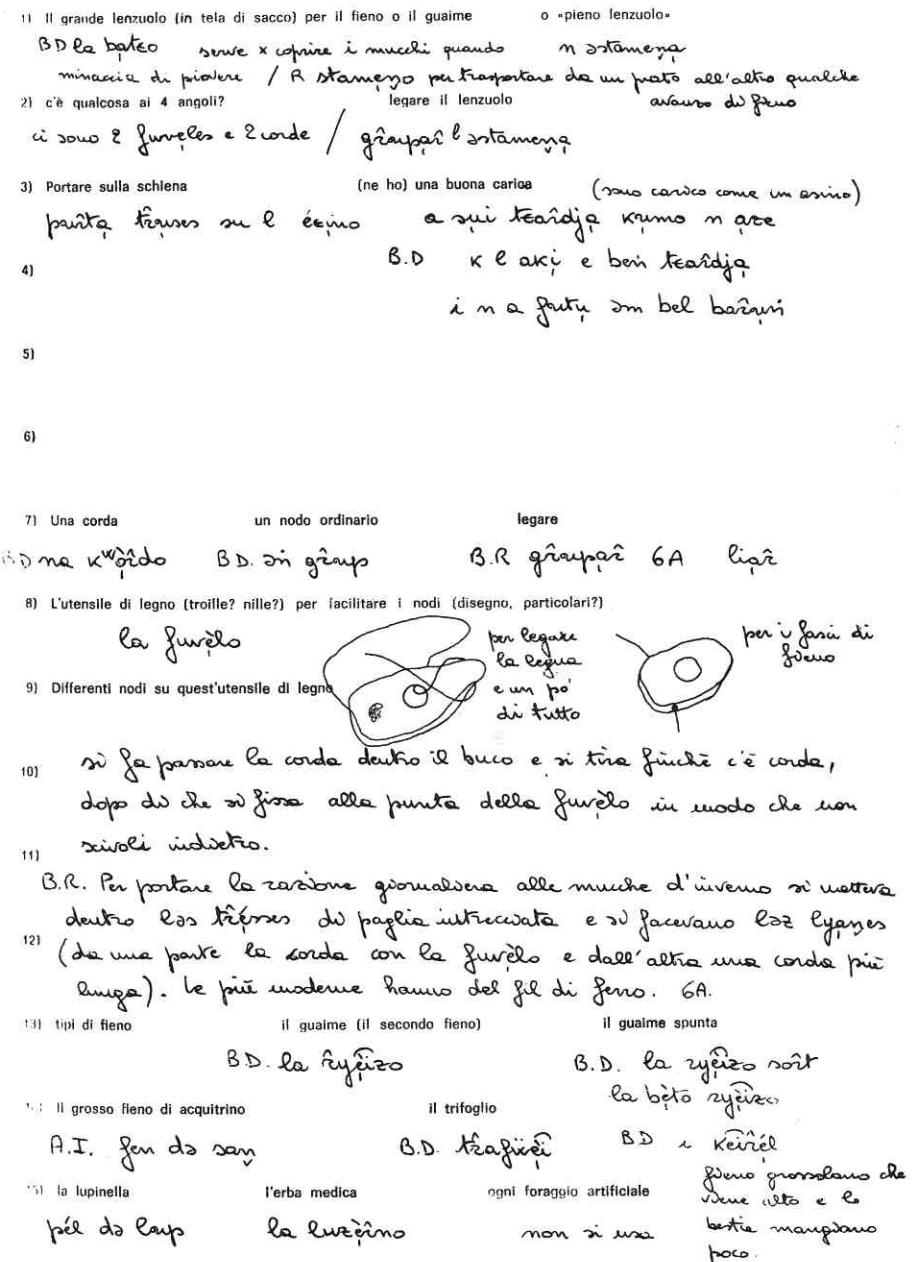 1) Il grande lenzuolo (in tela di sacco) per il fieno o il guaime o «pieno lenzuolo»
BD la batɛo serve x coprire i mucchi quando n ǝstamenạ
minaccia di piovere / R stamenọ per trasportare da un prato all'altro qualche
avanzo di fieno
2) c'è qualcosa ai 4 angoli? legare il lenzuolo
ci sono 2 furveles e 2 corde / gr̂aupar̂ l ǝstamenạ
3) Portare sulla schiena (ne ho) una buona carica (sono carico come un asino)
B.D
4)
5)
6)
7) Una corda un nodo ordinario legare
BD na kʷòr̂do BD. ǝn gr̂aup B.R gr̂aupar̂ 6A liar̂
8) L'utensile di legno (troille? nille?) per facilitare i nodi (disegno, particolari?)
la furvèlo
per legare
la legna
e un po'
di tutto
per i fasci di
fieno
9) Differenti nodi su quest'utensile di legno
10) si fa passare la corda dentro il buco e si tira finchè c'è corda,
dopo di che si fissa alla punta della furvèlo in modo che non
11) scivoli indietro.
B.R. Per portare la razione giornaliera alle mucche d'inverno si metteva
dentro lǝs tr̂ésses di paglia intrecciata e si facevano lǝz lyanes
12) (da una parte la corda con la furvèlo e dall'altra una corda più
lunga). Le più moderne hanno del fil di ferro. 6A.
13) tipi di fieno il guaime (il secondo fieno) il guaime spunta
B.D. la r̂yèizo B.D. la ryèizo sor̂t
la bèto ryèizo
Il grosso fieno di acquitrino il trifoglio
A.I. fen dǝ saṇ B.D. tr̂afüèi BD ɩ keir̂él
fieno grossolano che
viene alto e le
bestie mangiano
poco.
15) la lupinella l'erba medica ogni foraggio artificiale
pél dǝ laup la luzèr̂no non si usa